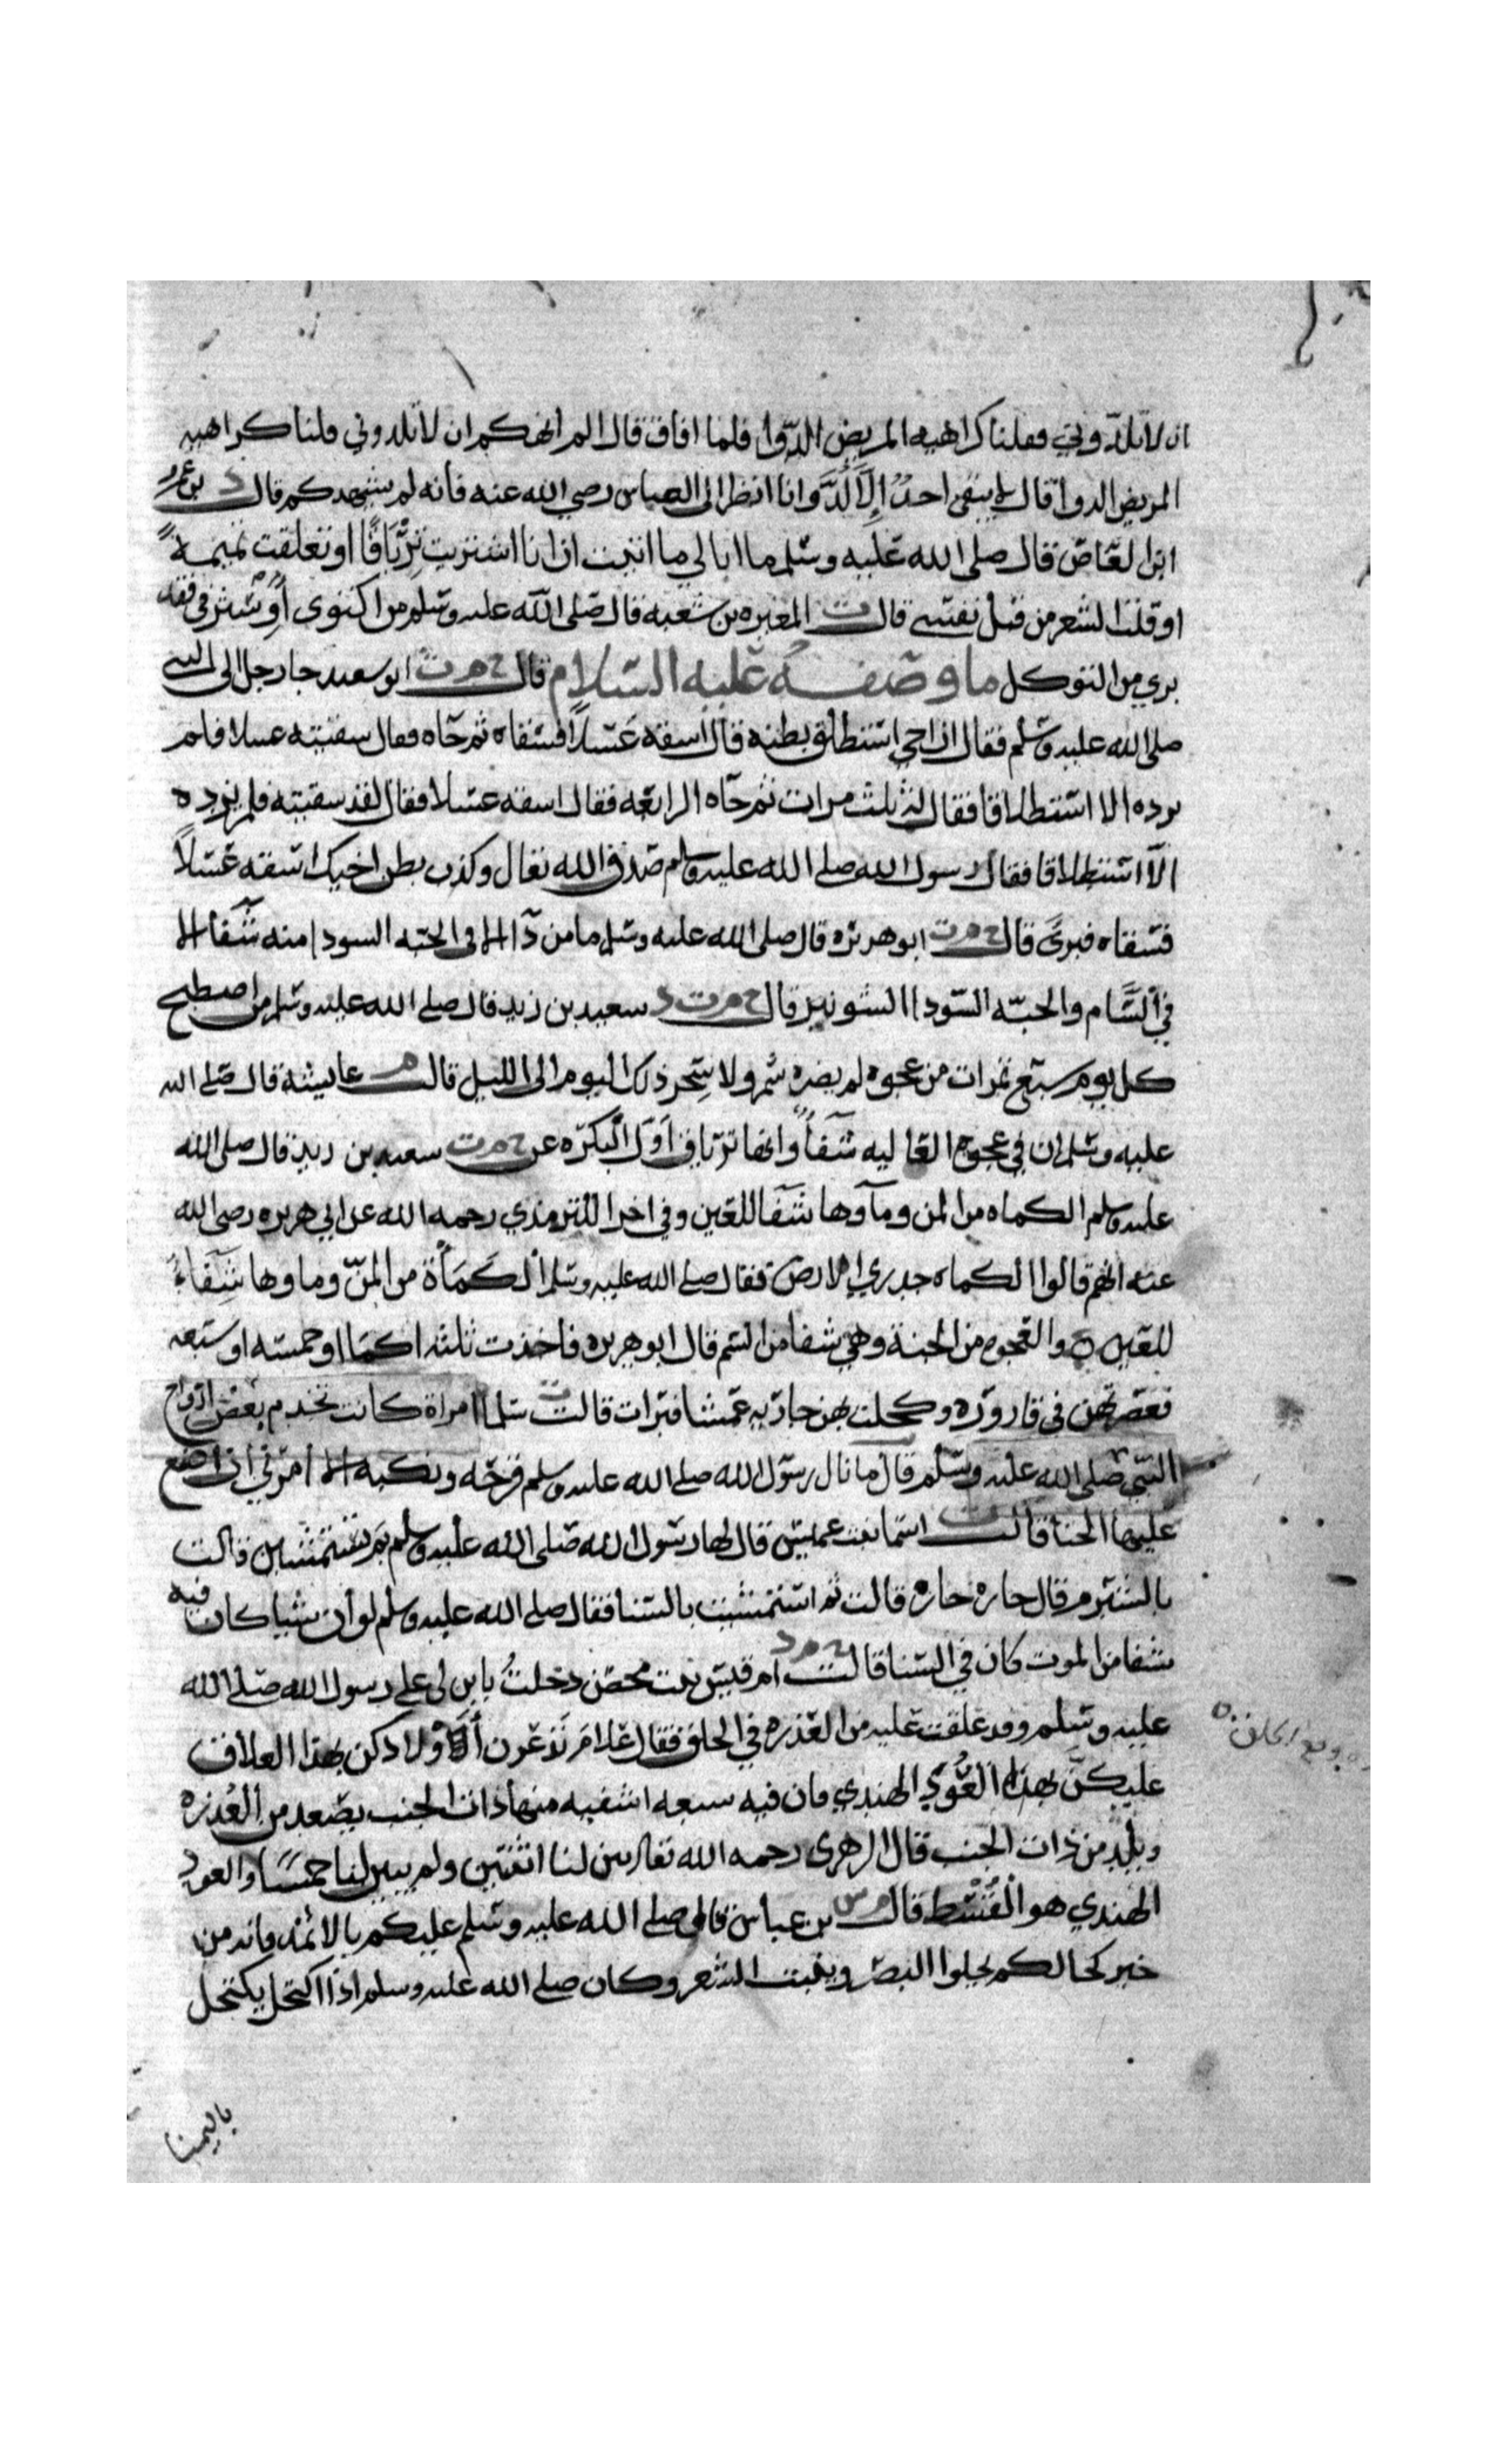 ان لا تلدوني فقلنا كراهيه المريض الدوا فلما افاق قال الم انهكم ان لا تلدوني قلنا كراهيه
المريض الدوا قال لا يبقى احدٌ إلا لُدَّ وانا انظر الى العباس رضي الله عنه فانه لم يشهدكم قال د بن عمرو
ابن العاص قال صلى الله عليه وسلم ما ابالي ما اتيت ان انا شربت تِرْيَاقًا او تعلقت تميمةً
او قلت الشعر من قبل نفسي قال ت المغيره بن شعبه قال صلى الله عليه وسلم من اكتوى أو استرقى فقد
بري من التوكل ما وصفه عليه السلام قال خ م ت ابو سعيد جا رجل الى النبي
صلى الله عليه وسلم فقال ان اخي استطلق بطنه قال اسقه عَسَلاً فسقاه ثم جآه فقال سقيته عسلا فلم
يزده الا استطلاقا فقال له ثلث مرات ثم جآه الرابعه فقال اسقه عسلا فقال لقد سقيته فلم يزده
الا استطلاقا فقال رسول الله صلى الله عليه وسلم صدق الله تعالى وكذب بطن اخيك اسقه عسلاً
فسقاه فبرئ قال خ م ت ابو هريره قال صلى الله عليه وسلم ما من دآ الا في الحبه السودا منه شفا الا
في السَّام والحبه السودا الشونيز قال خ م ت د سعيد بن زيد قال صلى الله عليه وسلم من اصطبح
كل يوم سبع تمرات من عجوه لم يضره سم ولا سِحر ذلك اليوم الى الليل قالت م عايشه قال صلى الله
عليه وسلم ان في عجوة العاليه شفآً وانها ترياق اوّل البكره عن خ م ت سعيد بن زيد قال صلى الله
عليه وسلم الكماه من المن ومآوها شفا للعين وفي اخرا للترمذي رحمه الله عن ابي هريره رضي الله
عنه انهم قالوا الكماه جدري الارض فقال صلى الله عليه وسلم الكَمأَة من المنّ وماوها شِفَاءٌ
للعين والعجوه من الجنة وهي شفا من السم قال ابو هريره فاخذت ثلثه اكما او خمسه او سبعه
فعصرتهن في قاروره وكحلت بهن جاريه عمشا فبرات قالت ت سلما امراة كانت تخدم بعض ازواج
النبي صلى الله عليه وسلم قال ما نال رسول الله صلى الله عليه وسلم قرحه ونكبه الا امرني ان اضع
عليها الحنا قالت ت اسما بنت عميس قال لها رسول الله صلى الله عليه وسلم بم تستمشين قالت
بالشبرم قال حاره حاره قالت ثم استمشيت بالسنا فقال صلى الله عليه وسلم لو أن شيا كان فيه
شفا من الموت كان في السنا قالت خ م د ام قيس بنت محصن دخلتُ بابن لي على رسول الله صلى الله
عليه وسلم وقد علقت عليه من العذره في الحلق فقال علام تَدْغَرن أَوْلادكن بهذا العلاق
عليكنّ بهذا العُود الهندي فان فيه سبعه اشفيه منها ذات الجنب يصعد من العُذره
ويلد من ذات الجنب قال الزهرى رحمه الله تعالى بين لنا اثنتين ولم يبين لنا خمسًا والعود
الهندي هو القُسْط قال م س بن عباس قال صلى الله عليه وسلم عليكم بالاثمد فانه من
خير كحالكم يجلوا البصر وينبت الشعر وكان صلى الله عليه وسلم اذا اكتحل يكتحل
باليمنا